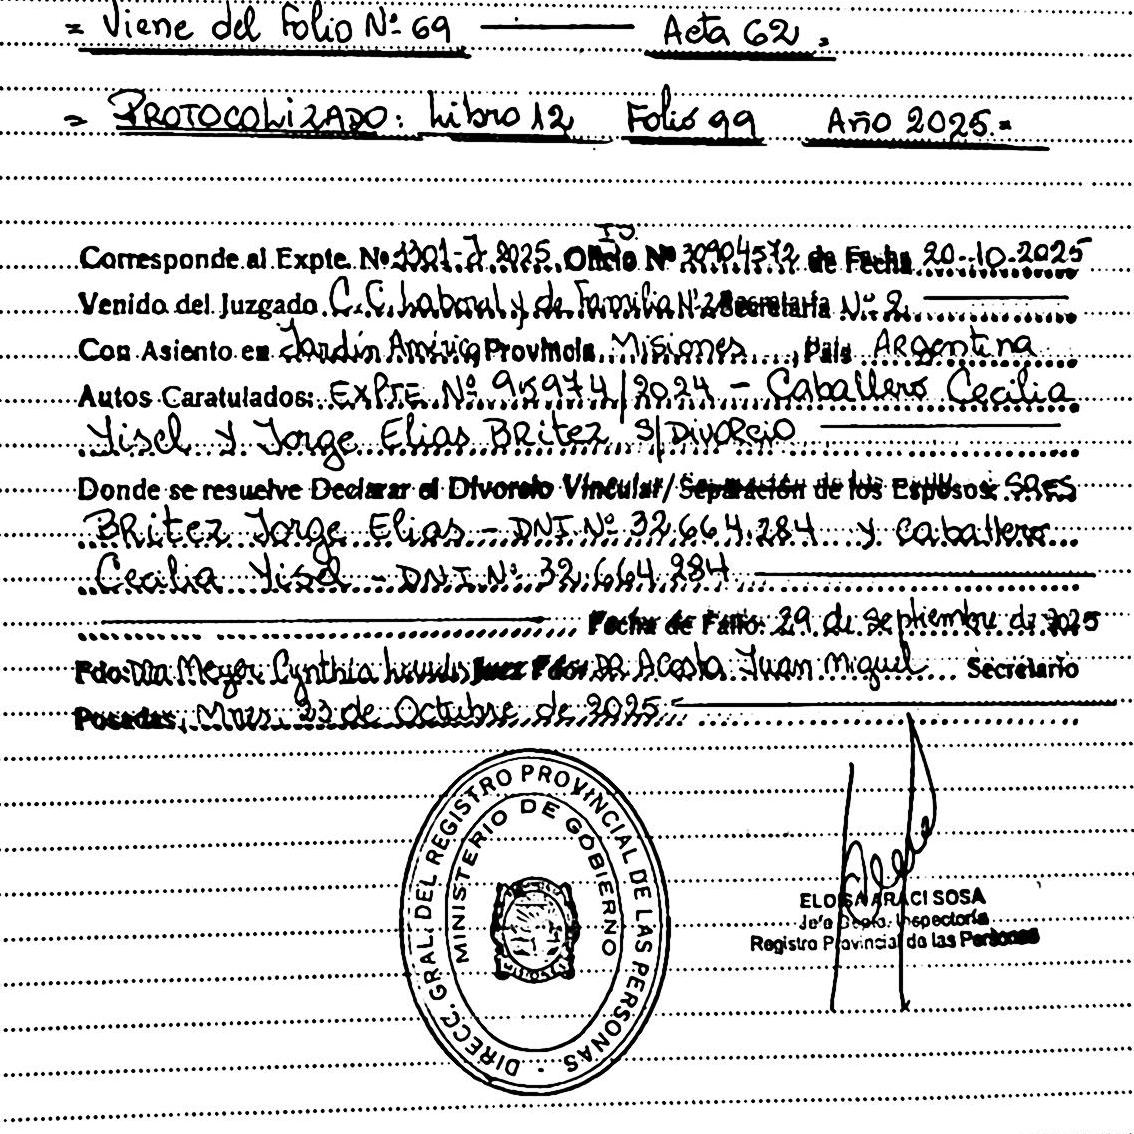 = Viene del Folio Nº 69 ——— Acta 62 =
= PROTOCOLIZADO: Libro 12 Folio 99 Año 2025.=
Corresponde al Expte. Nº 1301-J-2025 Oficio Nº 30904572 de Fecha 20-10-2025
Venido del Juzgado C.C. Laboral y de Familia Nº 2 Secretaría Nº 2
Con Asiento en Jardín América, Provincia Misiones, País Argentina
Autos Caratulados: EXPTE Nº 95974/2024 - Caballero Cecilia
Yisel y Jorge Elias Britez s/Divorcio
Donde se resuelve Declarar el Divorcio Vincular/Separación de los Esposos: SRES
Britez Jorge Elias - DNI Nº 32.664.284 y Caballero
Cecilia Yisel - DNI Nº 32.664.284
Fecha de Fallo: 29 de septiembre de 2025
Fdo: Dra Meyer Cynthia Juez Fdo: DR Acosta Juan Miguel Secretario
Posadas, Mnes, 23 de Octubre de 2025
DIRECC. GRAL. DEL REGISTRO PROVINCIAL DE LAS PERSONAS
MINISTERIO DE GOBIERNO
MISIONES
ELOISA ARACI SOSA
Jefa Depto. Inspectoría
Registro Provincial de las Personas